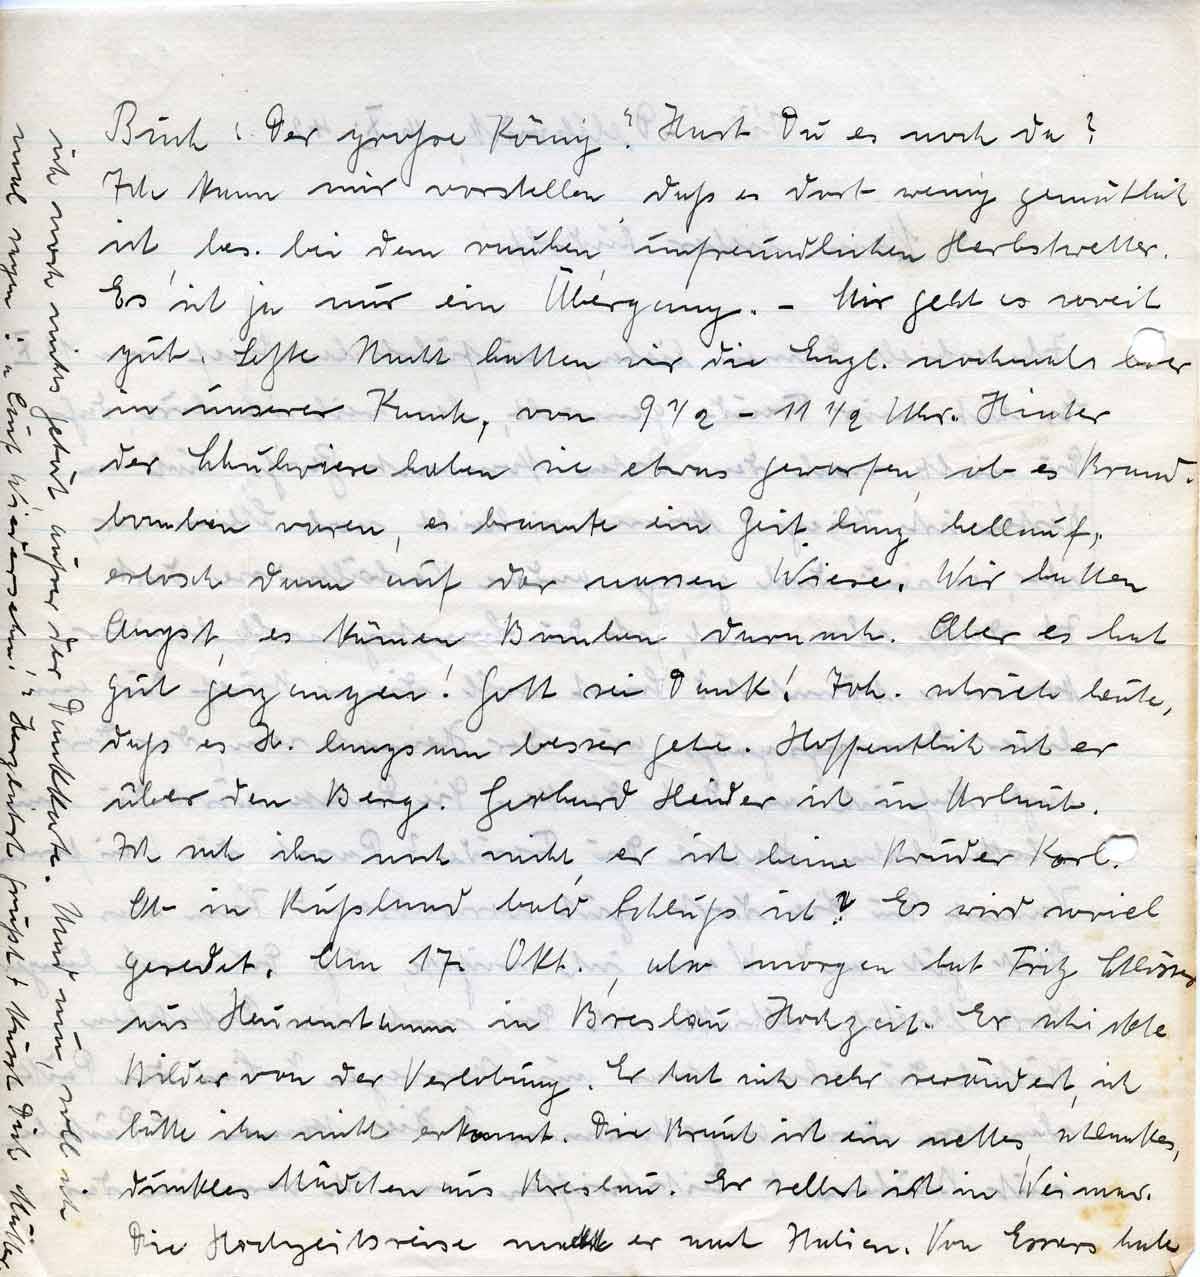 Buch „Der große König“. Hast Du es noch da?
Ich kann mir vorstellen, daß es dort wenig gemütlich
ist, bes. bei dem rauhen, unfreundlichen Herbstwetter.
Es ist ja nur ein Übergang. – Mir geht es soweit
gut. Letzte Nacht hatten wir die Engl. nochmals hier
in unserer, von 9 1/2 – 11 1/2 Uhr. Hinter
der Schulwiese haben sie etwas geworfen, ob es Brand-
bomben waren, es brannte ein Zeit lang hellauf,
erlosch dann auf der nassen Wiese. Wir hatten
Angst, es kämen Bomben darnach. Aber es hat
gut gegangen! Gott sei Dank! Joh. schrieb heute,
daß es H. langsam besser gehe. Hoffentlich ist er
über den Berg. Gerhard Heider ist in Urlaub.
Ich sah ihn noch nicht, er ist beim Bruder Karl.
Ob in Rußland bald Schluß ist? Es wird soviel
geredet. Am 17. Okt., also morgen hat Fritz
aus Heusenstamm in Breslau Hochzeit. Er schickte
Bilder von der Verlobung. Er hat sich sehr verändert, ich
hätte ihn nicht erkannt. Die Braut ist ein nettes, schlankes,
dunkles Mädchen aus Breslau. Er selbst ist in Weimar.
Die Hochzeitsreise macht er nach Italien. Von Essers habe
ich noch nichts gehört, außer der Dankkarte. Und nun, soll ich
mal sagen: „Auf Wiedersehn!“? Herzlichst grüßt + küsst Dich Mutter.